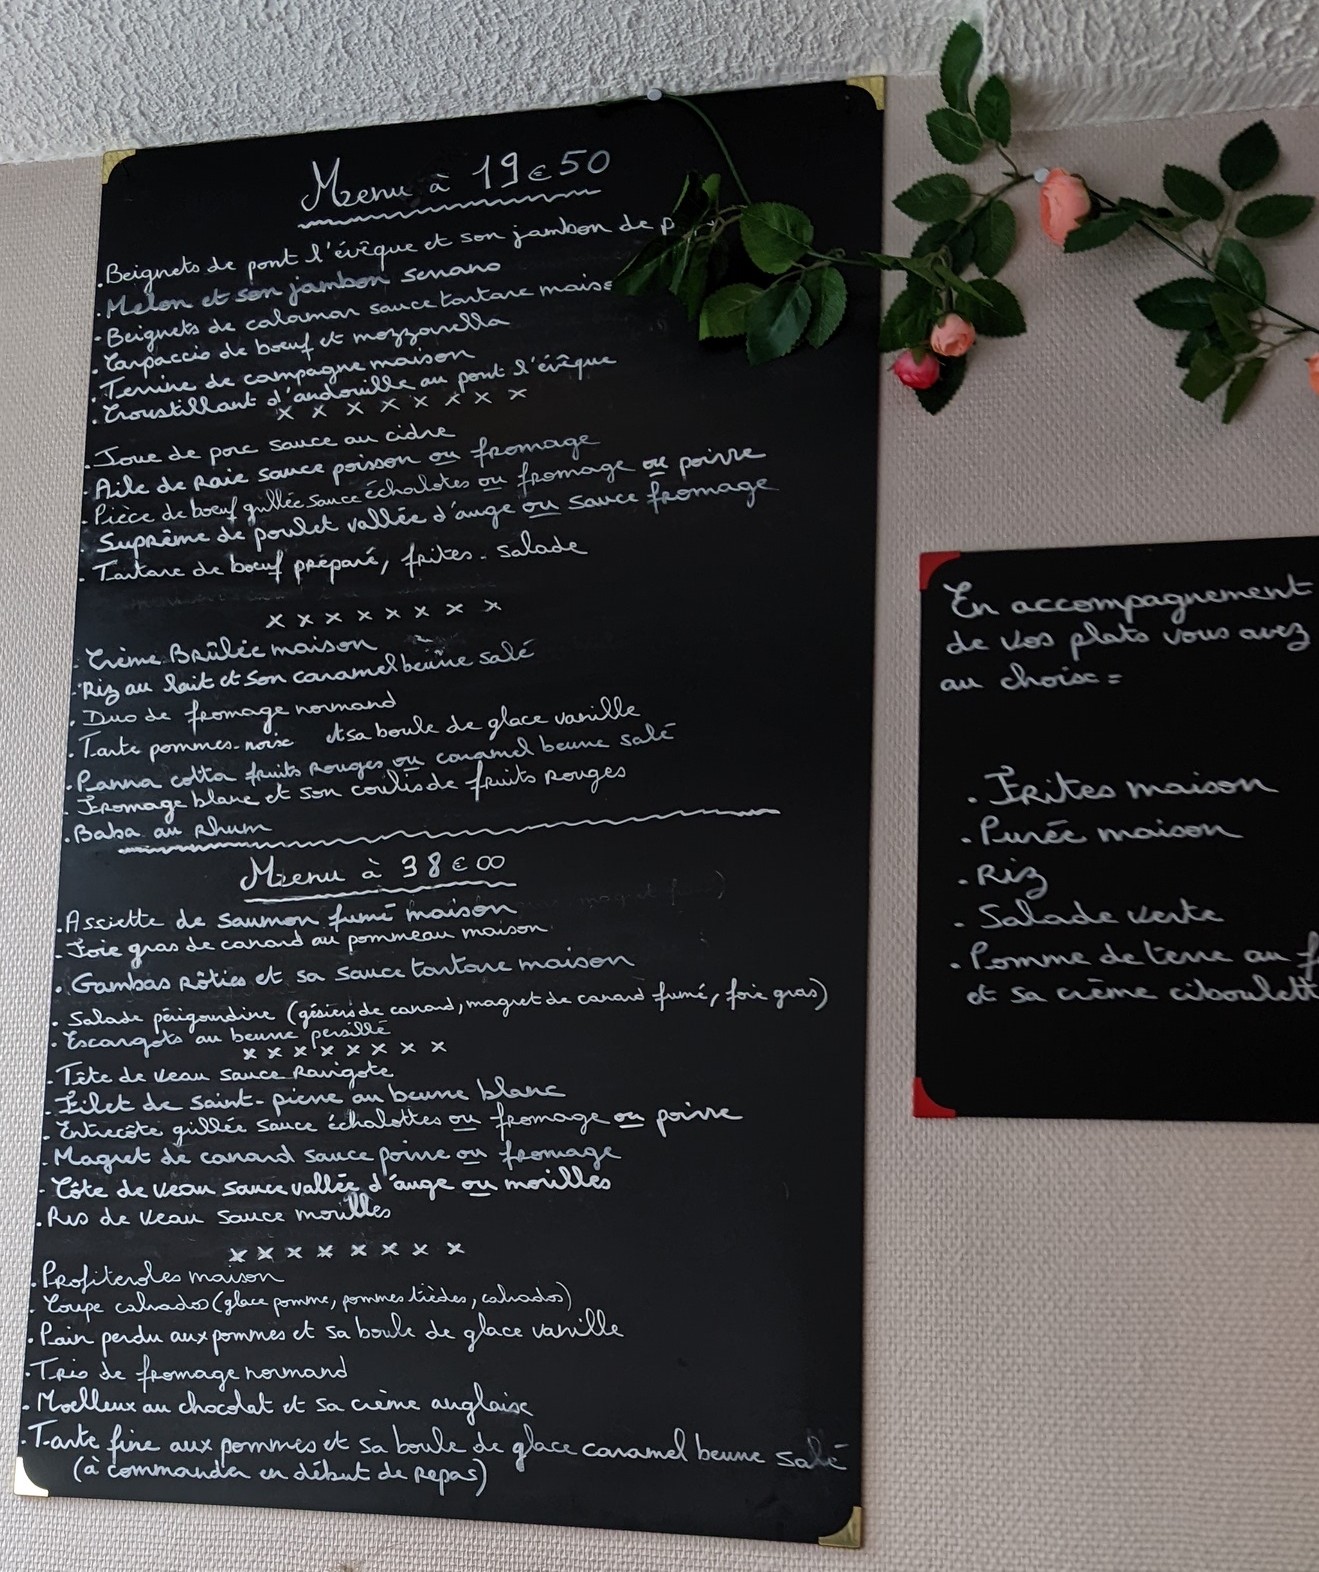 Menu à 19€50
. Beignets de pont l'évêque et son jambon de
. Melon et son jambon serrano
. Beignets de calamar sauce tartare
. Carpaccio de boeuf et mozzarella
. Terrine de campagne maison
. Croustillant d'andouille au pont l'évêque
x x x x x x x x
. Joue de porc sauce au cidre
. Aile de Raie sauce poisson ou fromage
. Pièce de boeuf grillée sauce échalotes ou fromage ou poivre
. Suprême de poulet vallée d'auge ou sauce fromage
. Tartare de boeuf préparé, frites - salade
x x x x x x x x
. Crème Brûlée maison
. Riz au lait et son caramel beurre salé
. Duo de fromage normand
. Tarte pommes-noix et sa boule de glace vanille
. Panna cotta fruits rouges ou caramel beurre salé
. Fromage blanc et son coulis de fruits rouges
. Baba au Rhum
Menu à 38€00
. Assiette de saumon fumé maison
. Foie gras de canard au pommeau maison
. Gambas rôties et sa sauce tartare maison
. Salade périgourdine (gésiers de canard, magret de canard fumé, foie gras)
. Escargots au beurre persillé
x x x x x x x x
. Tête de veau sauce Ravigote
. Filet de saint-pierre au beurre blanc
. Entrecôte grillée sauce échalottes ou fromage ou poivre
. Magret de canard sauce poivre ou fromage
. Côte de veau sauce vallée d'auge ou morilles
. Ris de veau sauce morilles
x x x x x x x x
. Profiteroles maison
. Coupe calvados (glace pomme, pommes tièdes, calvados)
. Pain perdu aux pommes et sa boule de glace vanille
. Trio de fromage normand
. Moelleux au chocolat et sa crème anglaise
. Tarte fine aux pommes et sa boule de glace caramel beurre salé
(à commander en début de repas)
En accompagnement
de vos plats vous avez
au choix =
. Frites maison
. Purée maison
. Riz
. Salade verte
. Pomme de terre au
et sa crème